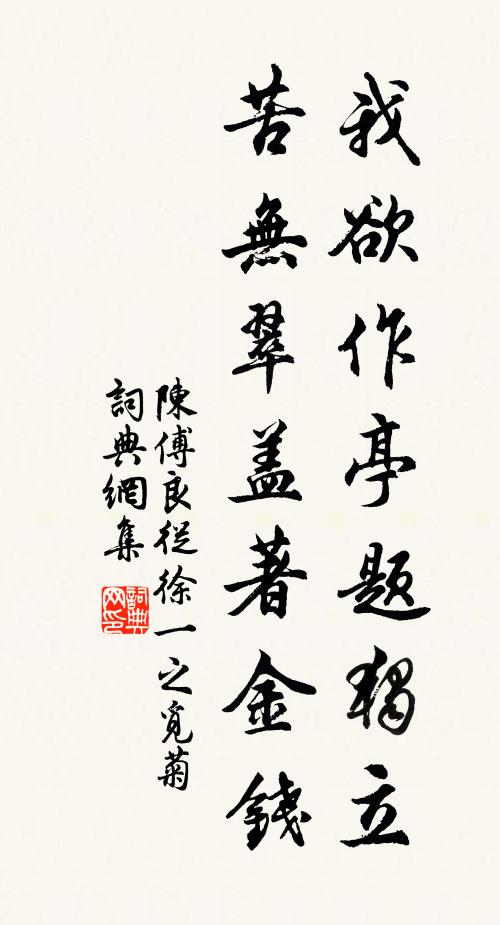 我欲作亭題獨立
苦無翠盖著金錢
陳傅良從徐一之覓菊
詞典網集
詞典网印